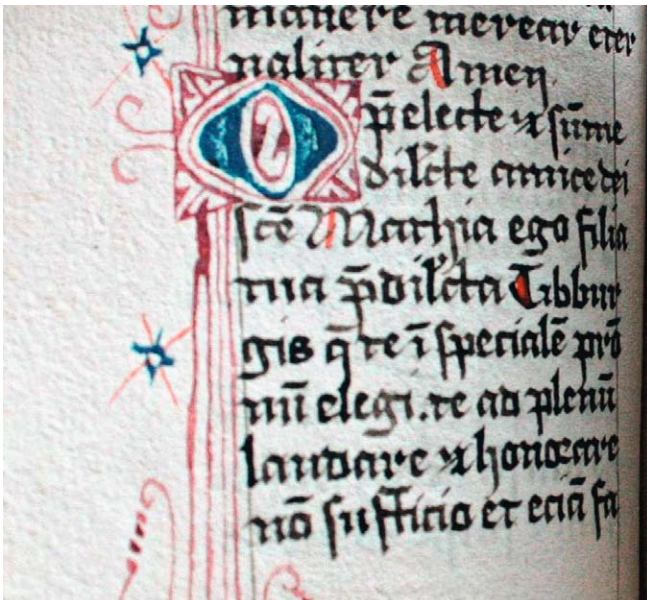 manere merear eter
naliter Amen.
O p̄electe ⁊ sūme
dilc̄te amice dei
sc̄e Mathia ego filia
tua p̄dilc̄ta Tibbur
gis q̄ te ī speciālē prō
nū elegi. te ad plenū
laudare ⁊ honorare
nō sufficio et eciā fa